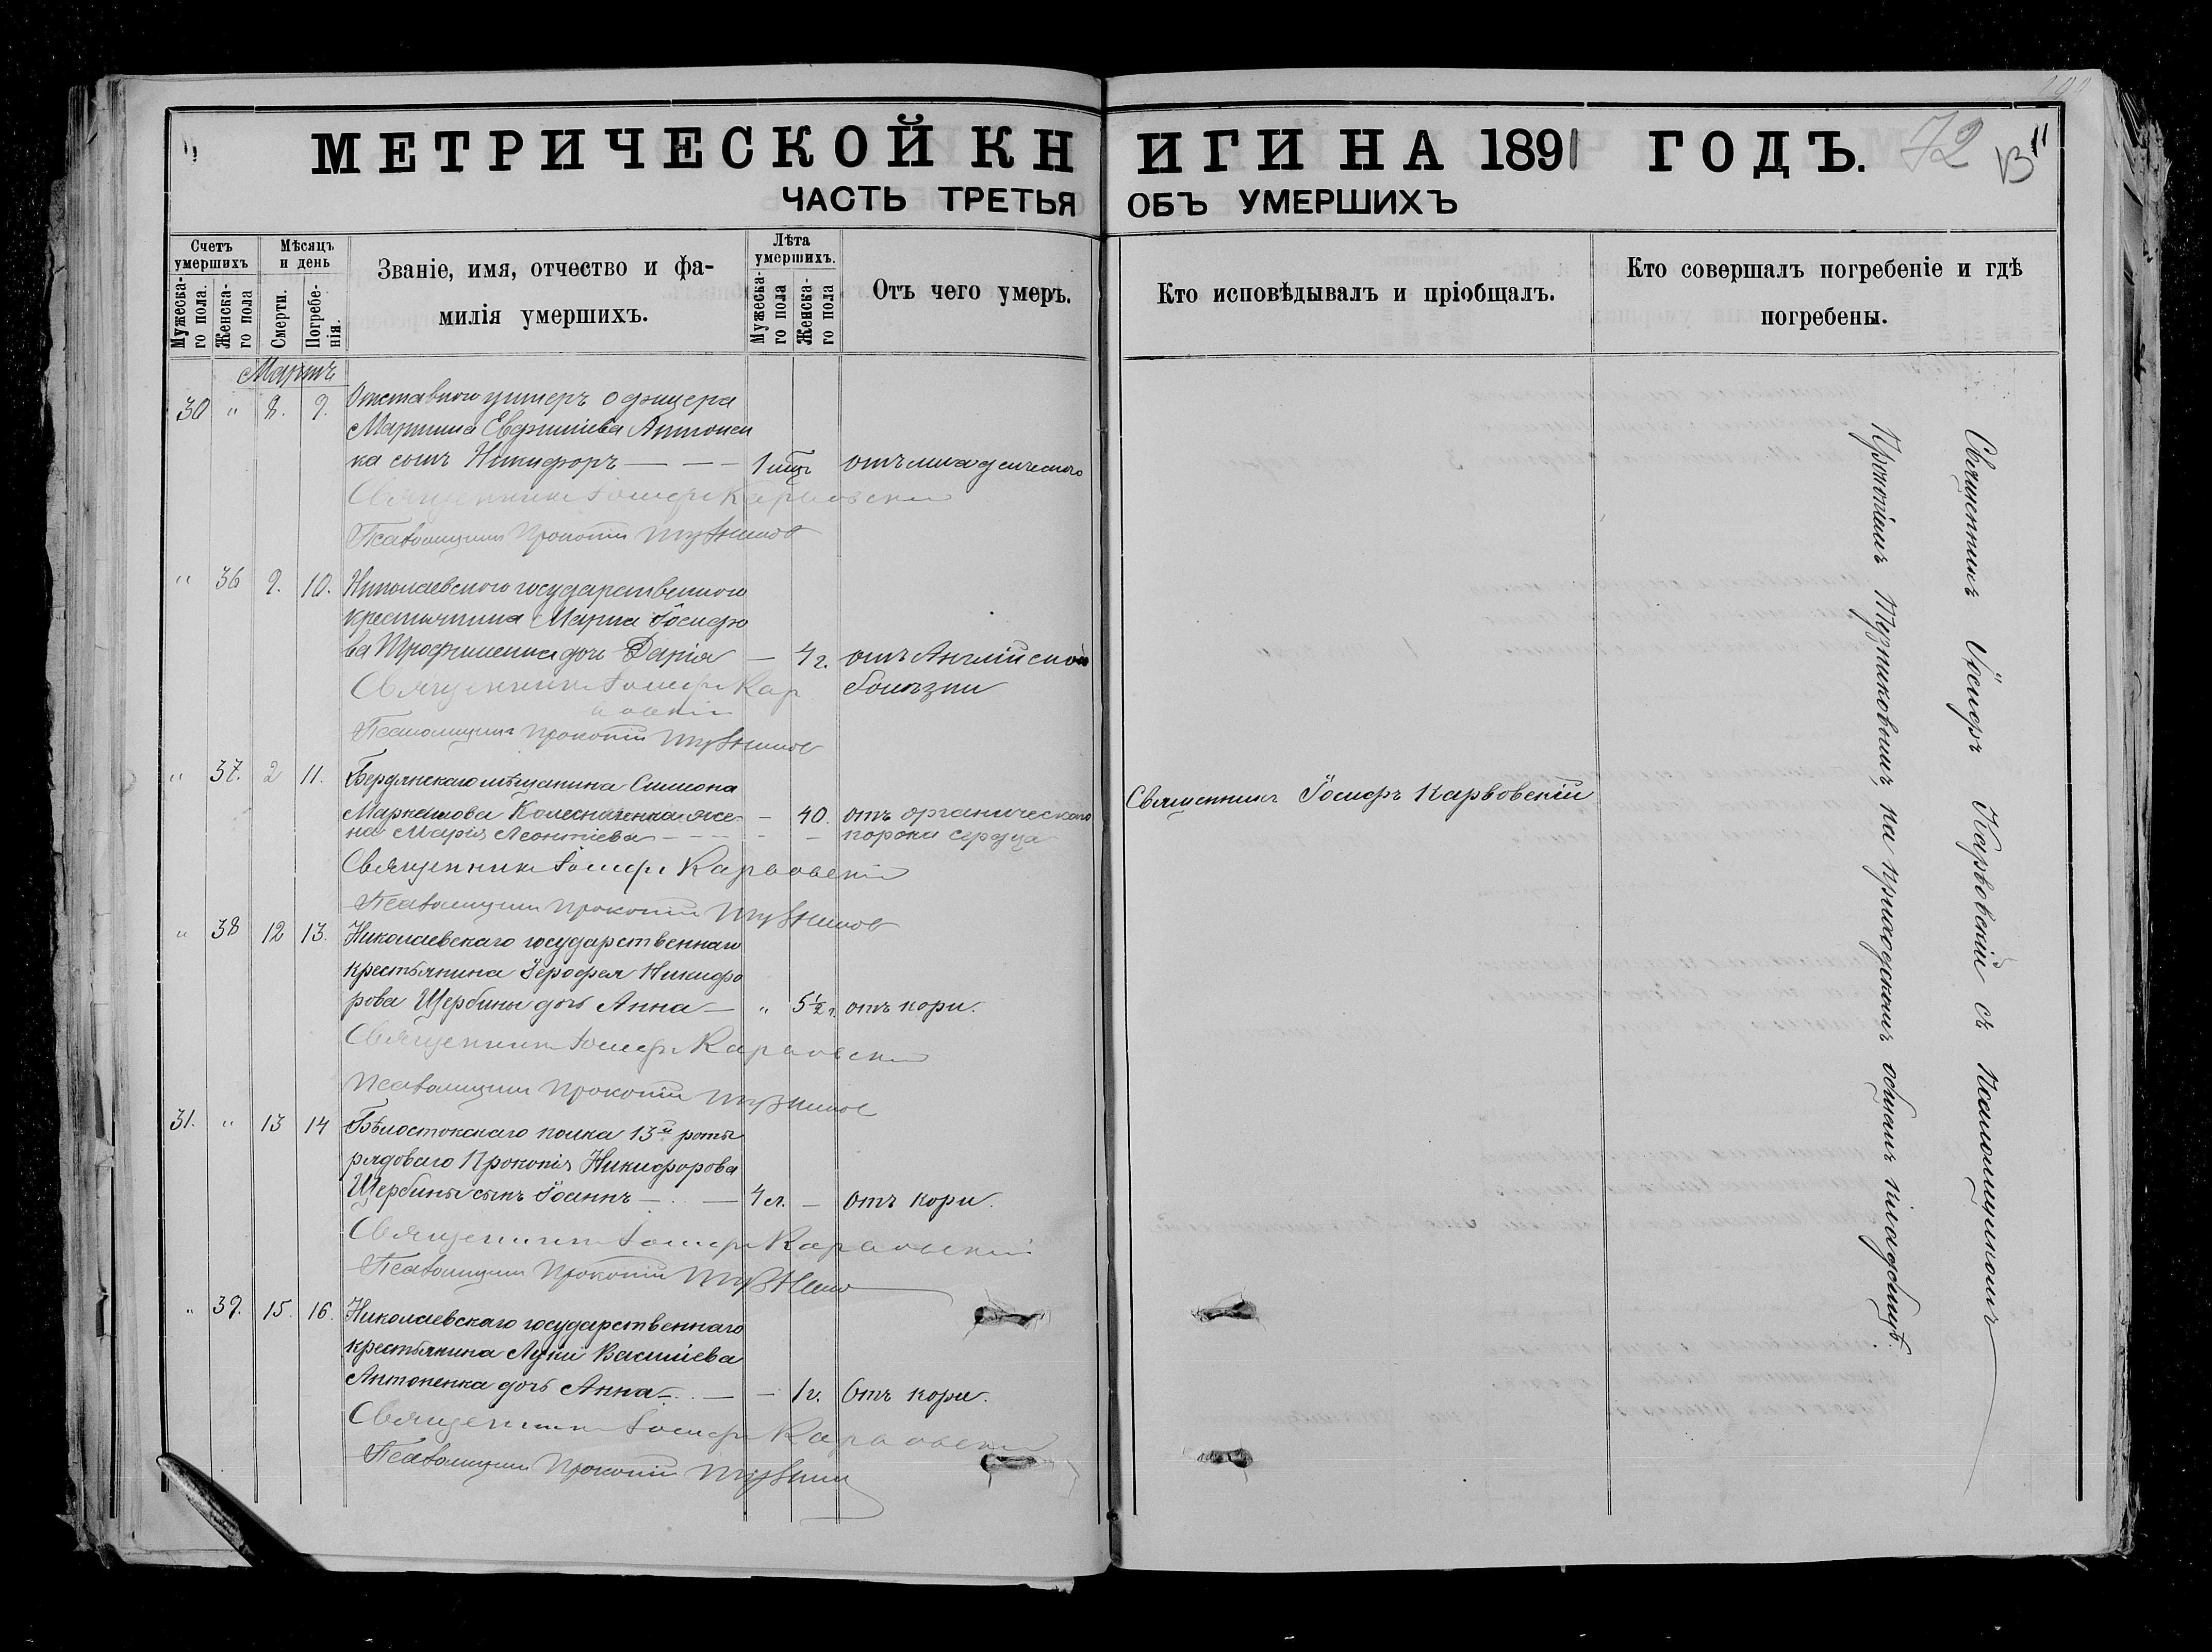 МЕТРИЧЕСКОЙ КНИГИ НА 1891 ГОДЪ.
72
ЧАСТЬ ТРЕТЬЯ ОБЪ УМЕРШИХЪ
Счетъ умершихъ
Мужеска-го пола.
Женска-го пола
Мѣсяцъ и день
Смерти.
Погребе-нія.
Званіе, имя, отчество и фа-
милія умершихъ.
Лѣта умершихъ.
Мужеска-го пола
Женска-го пола
Отъ чего умеръ.
Кто исповѣдывалъ и пріобщалъ.
Кто совершалъ погребеніе и гдѣ
погребены.
Мартъ
30 " 8. 9. Отставного унтеръ офицера
Мартина Евфиміева Антонен
ка сынъ Никифоръ — — — 1 мѣц отъ младенческаго
Священникъ Іосифъ Карвовскій
Псаломщикъ Прокопій Пузниковъ
" 36 9. 10. Николаевского государственного
крестьянина Марка Іосифо
ва Трофименка дочь Дарія — 4 г. отъ Англійской
Священникъ Іосифъ Кар болѣзни
вовскій
Псаломщикъ Прокопій Пузниковъ
" 37. 2 11. Бердянскаго мѣщанина Симеона
Маркелова Колесниченка же — 40. отъ органическаго
на Марія Леонтіева — — — порока сердца
Священникъ Іосифъ Карвовскій
Священникъ Іосифъ Карвовскій
Псаломщикъ Прокопій Пузниковъ
" 38 12 13. Николаевскаго государственнаго
крестьянина Іерофея Никифо
рова Щербины дочь Анна — " 5½ г. отъ кори.
Священникъ Іосифъ Карвовскій
Псаломщикъ Прокопій Пузниковъ
31. " 13 14 Бѣлостокскаго полка 13й роты
рядоваго Прокопія Никифорова
Щербины сынъ Іоаннъ — — 4 л. — Отъ кори.
Священникъ Іосифъ Карвовскій
Псаломщикъ Прокопій Пузников
" 39. 15. 16. Николаевскаго государственнаго
крестьянина Луки Василіева
Антоненка дочь Анна — — — 1 г. Отъ кори.
Священникъ Іосифъ Карвовскій
Псаломщикъ Прокопій Пузник
Священникъ Іосифъ Карвовскій съ Псаломщикомъ
Прокопіемъ Пузниковымъ на приходскомъ общемъ кладбищѣ.